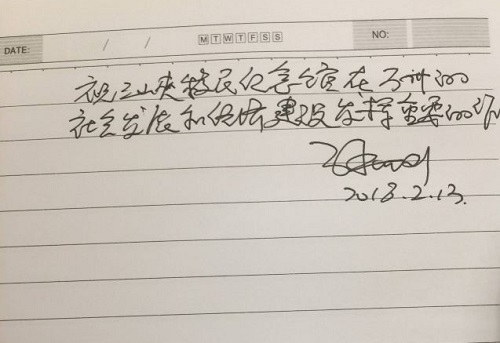 DATE: / / M T W T F S S NO:
祝三峡移民纪念馆在万州的
社会发展和经济建设发挥重要的作
2018.2.13.